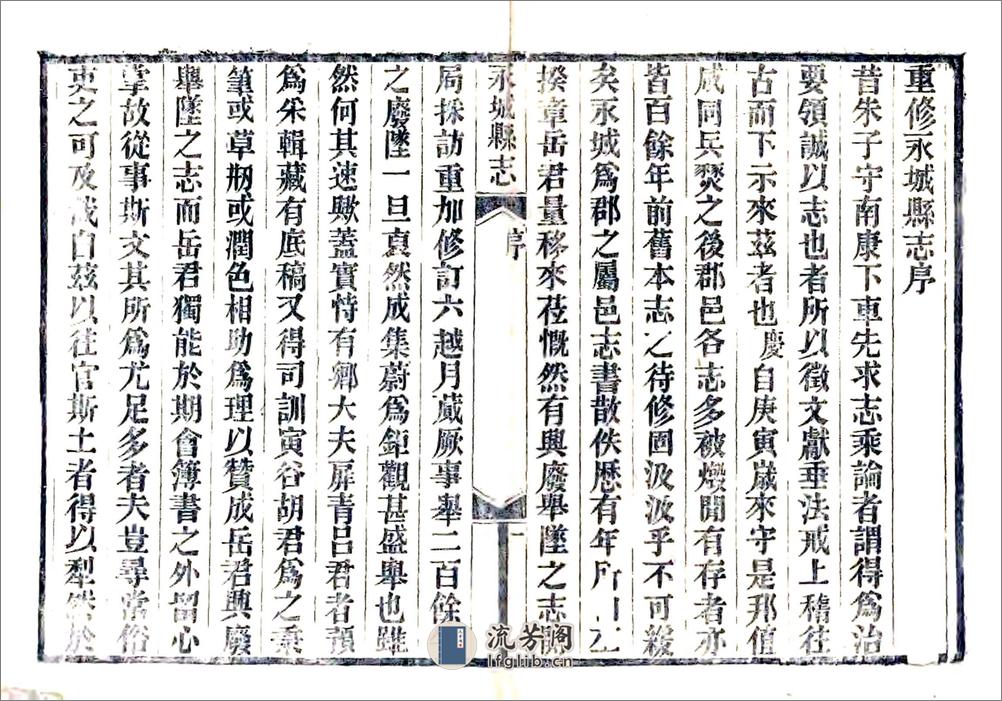 重修永城縣志序
昔朱子守南康下車先求志乘論者謂得爲治
要領誠以志也者所以徵文獻垂法戒上稽往
古而下示來茲者也慶自庚寅歲來守是邦值
咸同兵燹之後郡邑各志多被燬閒有存者亦
皆百餘年前舊本志之待修固汲汲乎不可緩
矣永城爲郡之屬邑志書散佚歷有年所
揆章岳君量移來莅慨然有興廢舉墜之志
永城縣志 序
局採訪重加修訂六越月蕆厥事舉二百餘
之廢墜一旦裒然成集蔚爲鉅觀甚盛舉也雖
然何其速歟蓋實恃有鄉大夫屏青呂君者預
爲采輯藏有底稿又得司訓寅谷胡君爲之秉
筆或草刱或潤色相助爲理以贊成岳君興廢
舉墜之志而岳君獨能於期會簿書之外留心
掌故從事斯文其所爲尤足多者夫豈尋常俗
吏之可及哉自茲以往官斯土者得以犁然於
流芳閣
lfglib.cn